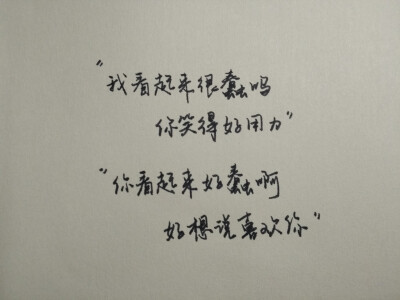 “我看起来很蠢吗
你笑得好用力”
“你看起来好蠢啊
好想说喜欢你”